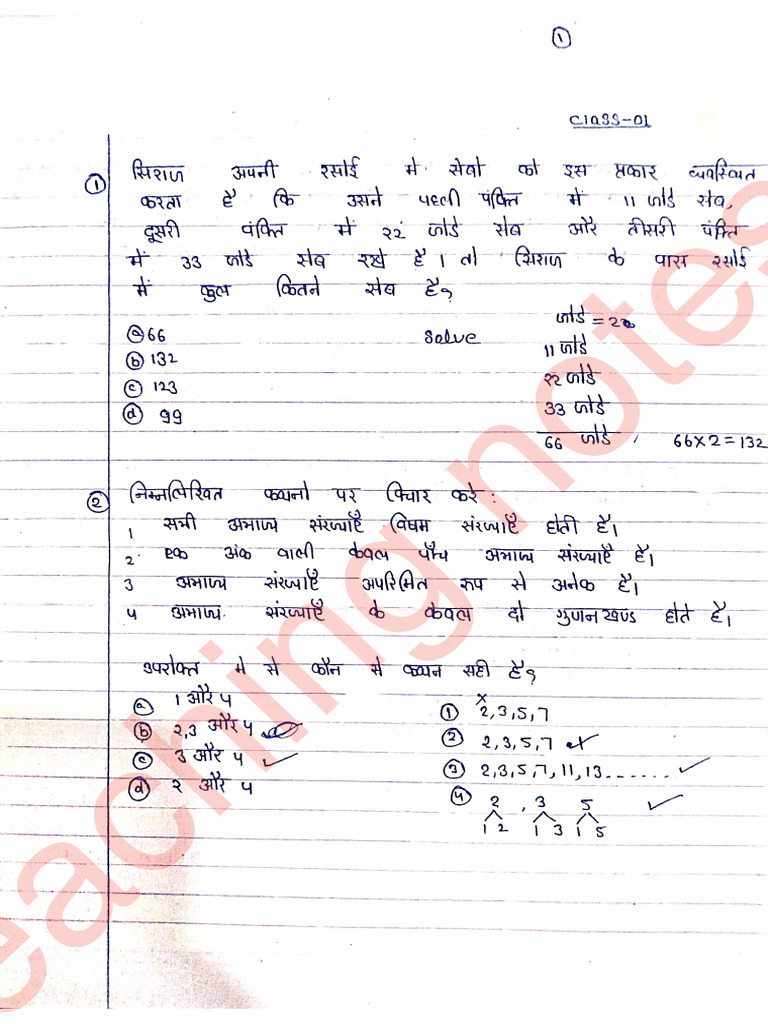 ①
Class-01
① सिराज अपनी रसोई मे सेबो को इस प्रकार व्यवस्थित
करता है कि उसने पहली पंक्ति में 11 जोडे सेब,
दूसरी पंक्ति में 22 जोडे सेब और तीसरी पंक्ति
में 33 जोडे सेब रखे है। तो सिराज के पास रसोई
में कुल कितने सेब है?
ⓐ 66
ⓑ 132
ⓒ 123
ⓓ 99
Solve
जोडे = 2
11 जोडे
22 जोडे
33 जोडे
66 जोडे, 66×2=132
② निम्नलिखित कथनो पर विचार करे:
1 सभी अभाज्य संख्याएँ विषम संख्याएँ होती है।
2. एक अंक वाली केवल पाँच अभाज्य संख्याएँ है।
3 अभाज्य संख्याएँ अपरिमित रूप से अनेक है।
4 अभाज्य संख्याएँ के केवल दो गुणनखण्ड होते है।
उपरोक्त मे से कौन से कथन सही है?
ⓐ 1 और 4
ⓑ 2,3 और 4
ⓒ 3 और 4 ✓
ⓓ 2 और 4
① 2,3,5,7 ×
② 2,3,5,7 ×
③ 2,3,5,7,11,13....... ✓
④ 2, 3 5 ✓
1 2 1 3 1 5
eaching notes